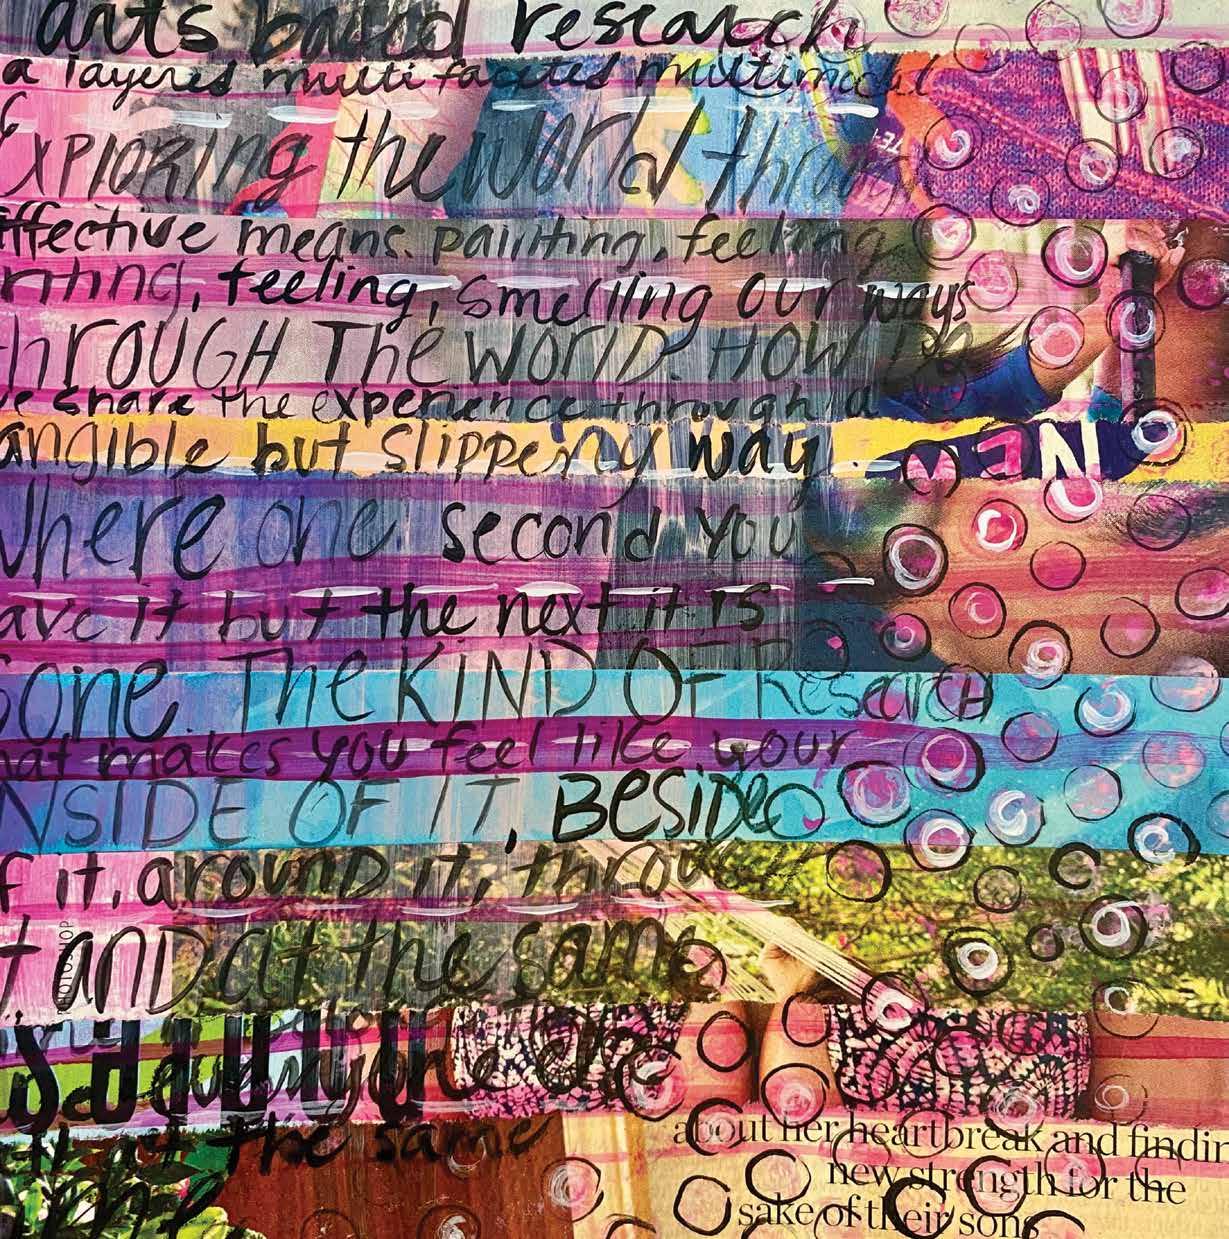 arts based research
a layered multi faceted multimodal
Exploring the world through
effective means. painting, feeling
writing, feeling, smelling our ways
through The World. How Do
we share the experience through a
tangible but slippery way
Where one second you
have it but the next it is
Gone. The KIND OF Research
that makes you feel like your
INSIDE OF IT, BESIDE
of it, around it, throu
it AND at the same
PHOTOSHOP
NE
at the same
time
about her heartbreak and findin
new strength for the
sake of their sons